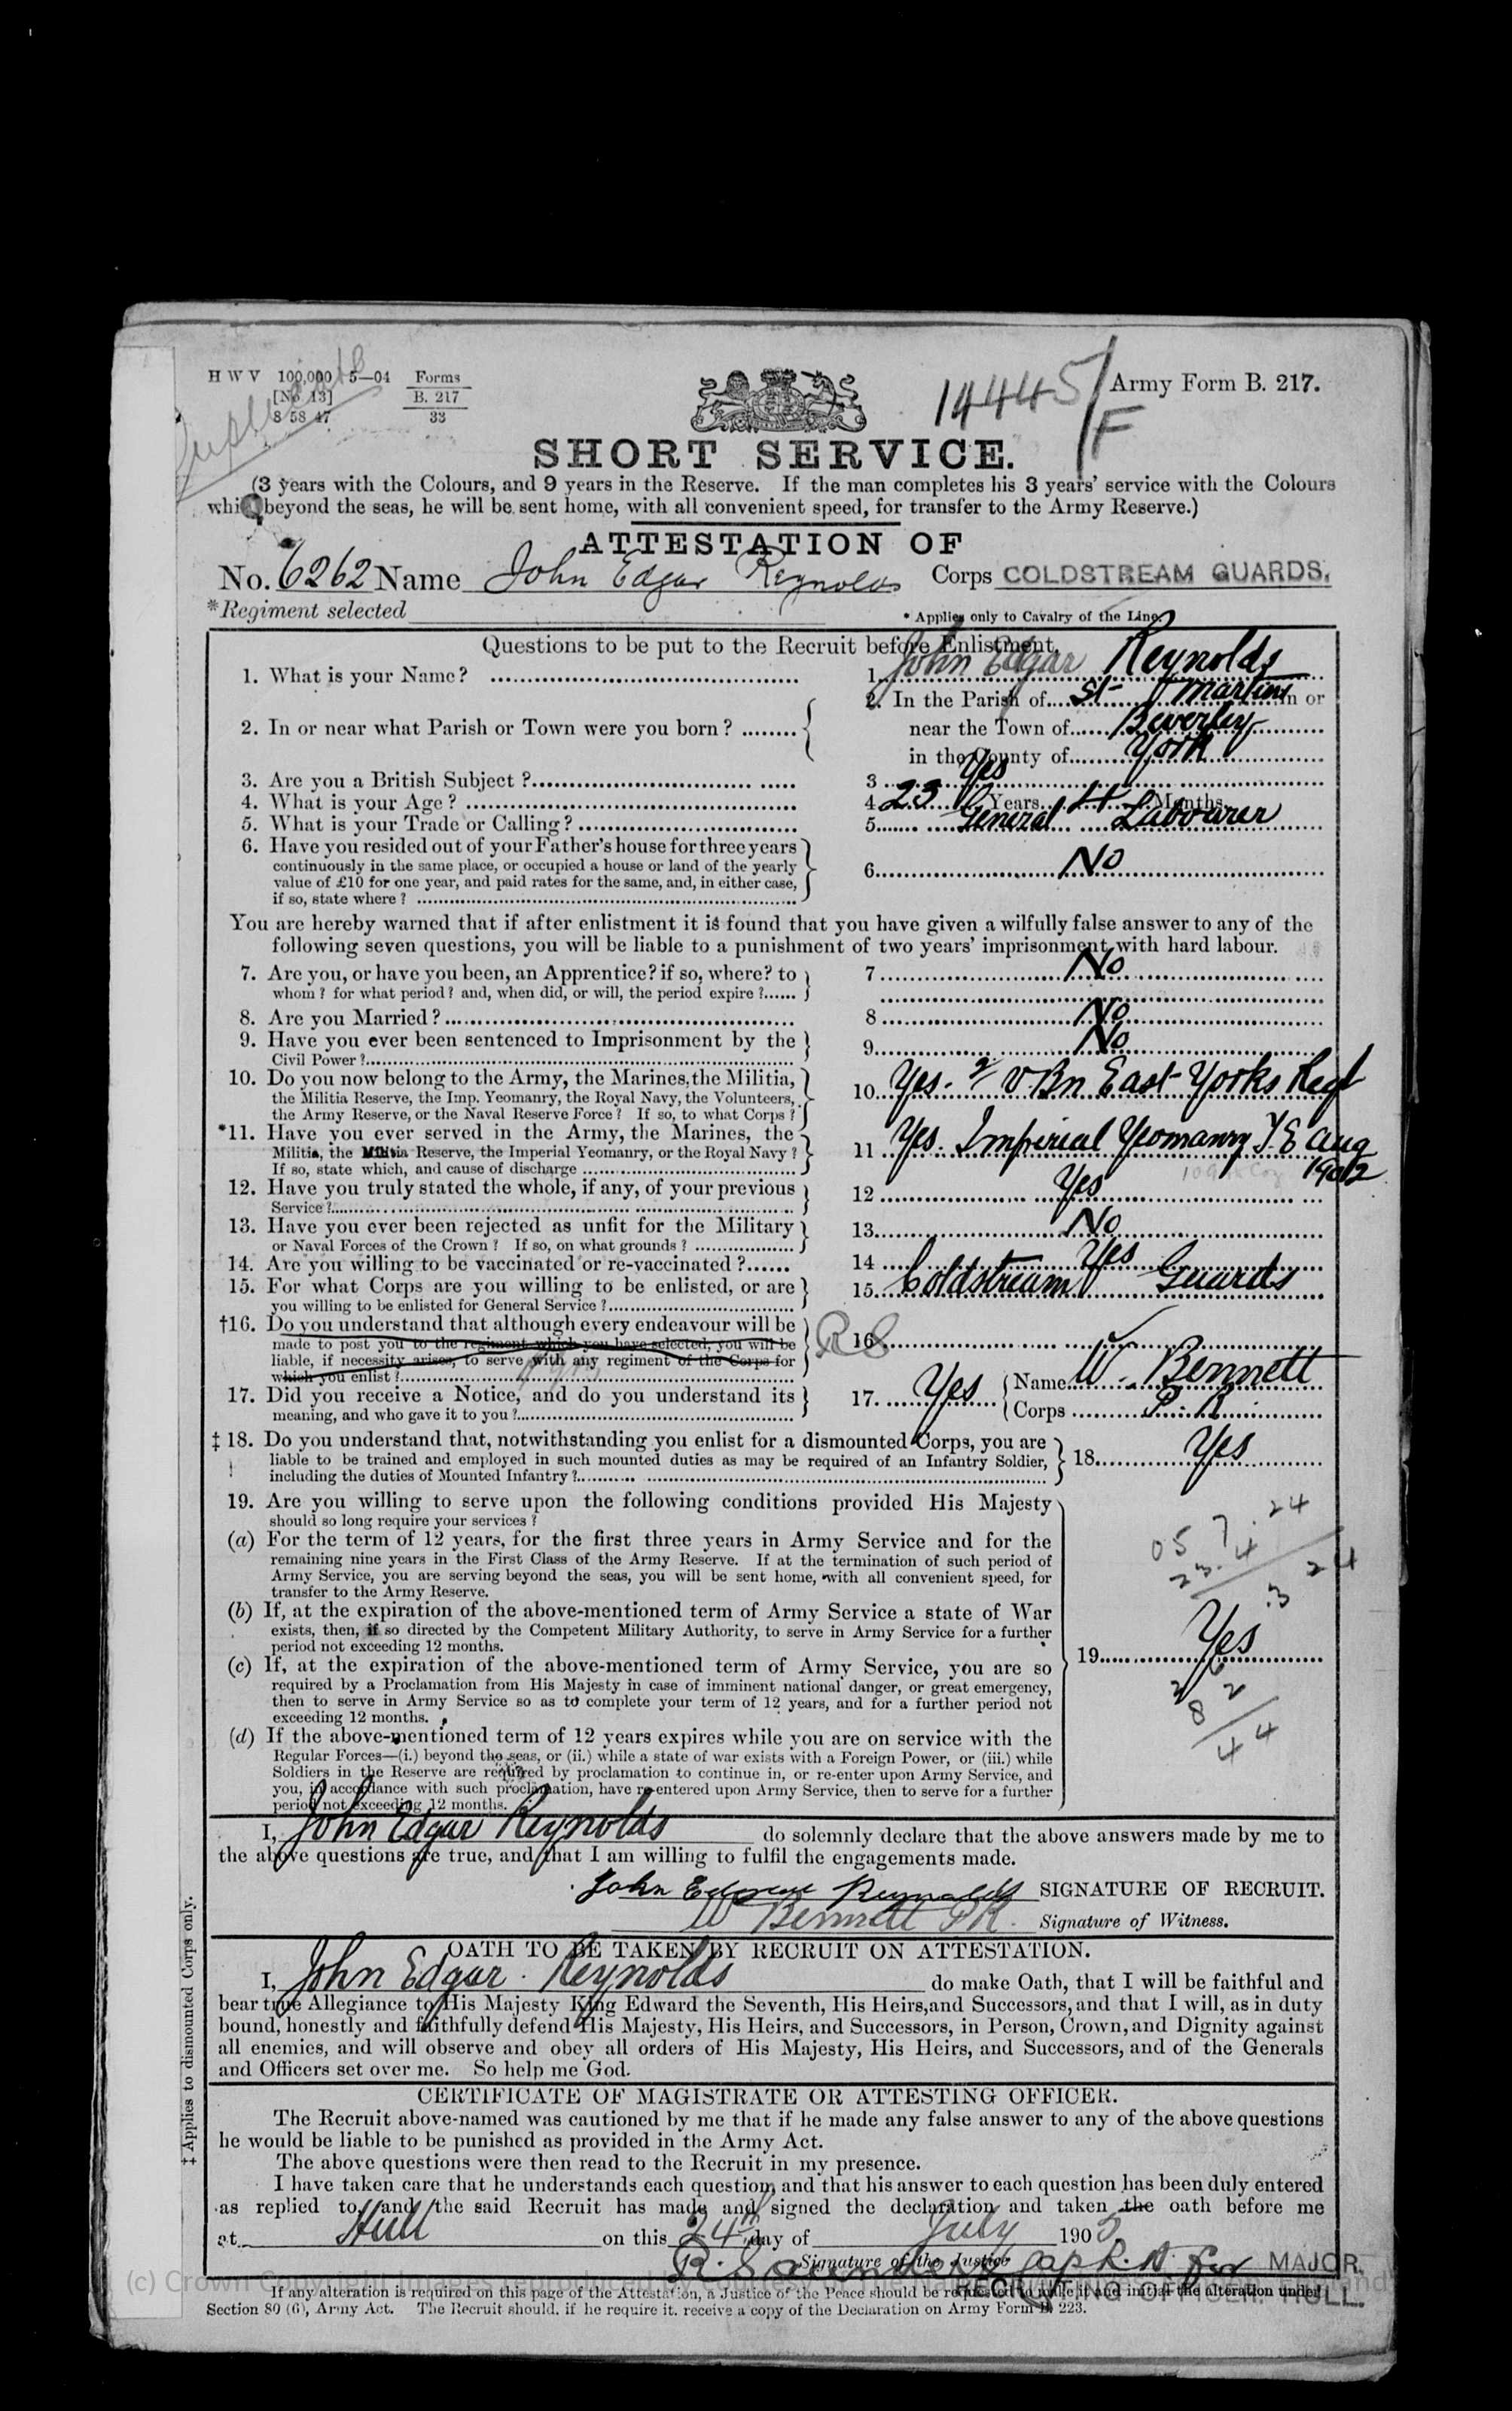 H W V 100,000 5—04 Forms
[No 13] B. 217
8 58 47 33
14445/F
Army Form B. 217.
SHORT SERVICE.
(3 years with the Colours, and 9 years in the Reserve. If the man completes his 3 years' service with the Colours
beyond the seas, he will be sent home, with all convenient speed, for transfer to the Army Reserve.)
ATTESTATION OF
No. 6262 Name John Edgar Reynolds Corps COLDSTREAM GUARDS.
*Regiment selected * Applies only to Cavalry of the Line.
Questions to be put to the Recruit before Enlistment.
1. What is your Name? 1. John Edgar Reynolds
2. In the Parish of St Martins in or
2. In or near what Parish or Town were you born? near the Town of Beverley
in the County of York
3. Are you a British Subject? 3 Yes
4. What is your Age? 4 23 Years 4 Months
5. What is your Trade or Calling? 5 General Labourer
6. Have you resided out of your Father's house for three years
continuously in the same place, or occupied a house or land of the yearly 6. No
value of £10 for one year, and paid rates for the same, and, in either case,
if so, state where?
You are hereby warned that if after enlistment it is found that you have given a wilfully false answer to any of the
following seven questions, you will be liable to a punishment of two years' imprisonment with hard labour.
7. Are you, or have you been, an Apprentice? if so, where? to 7 No
whom? for what period? and, when did, or will, the period expire?
8. Are you Married? 8 No
9. Have you ever been sentenced to Imprisonment by the 9. No
Civil Power?
10. Do you now belong to the Army, the Marines, the Militia, 10. Yes. 2/ V.Bn East Yorks Regt
the Militia Reserve, the Imp. Yeomanry, the Royal Navy, the Volunteers,
the Army Reserve, or the Naval Reserve Force? If so, to what Corps?
*11. Have you ever served in the Army, the Marines, the 11 Yes. Imperial Yeomanry T.E Aug
Militia, the Militia Reserve, the Imperial Yeomanry, or the Royal Navy? 1902
If so, state which, and cause of discharge
12. Have you truly stated the whole, if any, of your previous 12 Yes
Service?
13. Have you ever been rejected as unfit for the Military 13. No
or Naval Forces of the Crown? If so, on what grounds?
14. Are you willing to be vaccinated or re-vaccinated? 14 Yes
15. For what Corps are you willing to be enlisted, or are 15. Coldstream Guards
you willing to be enlisted for General Service?
†16. Do you understand that although every endeavour will be RS 16
made to post you to the regiment which you have selected, you will be
liable, if necessity arises, to serve with any regiment of the Corps for
which you enlist?
17. Did you receive a Notice, and do you understand its 17. Yes Name W. Bennett
meaning, and who gave it to you? Corps P. R.
‡ 18. Do you understand that, notwithstanding you enlist for a dismounted Corps, you are
liable to be trained and employed in such mounted duties as may be required of an Infantry Soldier, 18. Yes
including the duties of Mounted Infantry?
19. Are you willing to serve upon the following conditions provided His Majesty
should so long require your services?
05 7. 24
(a) For the term of 12 years, for the first three years in Army Service and for the
23. 4
remaining nine years in the First Class of the Army Reserve. If at the termination of such period of
.3 24
Army Service, you are serving beyond the seas, you will be sent home, with all convenient speed, for
transfer to the Army Reserve.
(b) If, at the expiration of the above-mentioned term of Army Service a state of War
exists, then, if so directed by the Competent Military Authority, to serve in Army Service for a further
period not exceeding 12 months.
(c) If, at the expiration of the above-mentioned term of Army Service, you are so 19. Yes
required by a Proclamation from His Majesty in case of imminent national danger, or great emergency,
then to serve in Army Service so as to complete your term of 12 years, and for a further period not
exceeding 12 months.
(d) If the above-mentioned term of 12 years expires while you are on service with the
Regular Forces—(i.) beyond the seas, or (ii.) while a state of war exists with a Foreign Power, or (iii.) while
Soldiers in the Reserve are required by proclamation to continue in, or re-enter upon Army Service, and
you, in accordance with such proclamation, have re-entered upon Army Service, then to serve for a further
period not exceeding 12 months.
I, John Edgar Reynolds do solemnly declare that the above answers made by me to
the above questions are true, and that I am willing to fulfil the engagements made.
John Edgar Reynolds SIGNATURE OF RECRUIT.
W Bennett P.R. Signature of Witness.
OATH TO BE TAKEN BY RECRUIT ON ATTESTATION.
I, John Edgar Reynolds do make Oath, that I will be faithful and
bear true Allegiance to His Majesty King Edward the Seventh, His Heirs, and Successors, and that I will, as in duty
bound, honestly and faithfully defend His Majesty, His Heirs, and Successors, in Person, Crown, and Dignity against
all enemies, and will observe and obey all orders of His Majesty, His Heirs, and Successors, and of the Generals
and Officers set over me. So help me God.
CERTIFICATE OF MAGISTRATE OR ATTESTING OFFICER.
The Recruit above-named was cautioned by me that if he made any false answer to any of the above questions
he would be liable to be punished as provided in the Army Act.
The above questions were then read to the Recruit in my presence.
I have taken care that he understands each question, and that his answer to each question has been duly entered
as replied to, and the said Recruit has made and signed the declaration and taken the oath before me
at Hull on this 24th day of July 1905
R. Saunders Signature of the Justice Capt. R.A for MAJOR.
RECRUITING OFFICER. HULL.
If any alteration is required on this page of the Attestation, a Justice of the Peace should be requested to make it and initial the alteration under
Section 80 (6), Army Act. The Recruit should, if he require it, receive a copy of the Declaration on Army Form B. 223.
‡ Applies to dismounted Corps only.